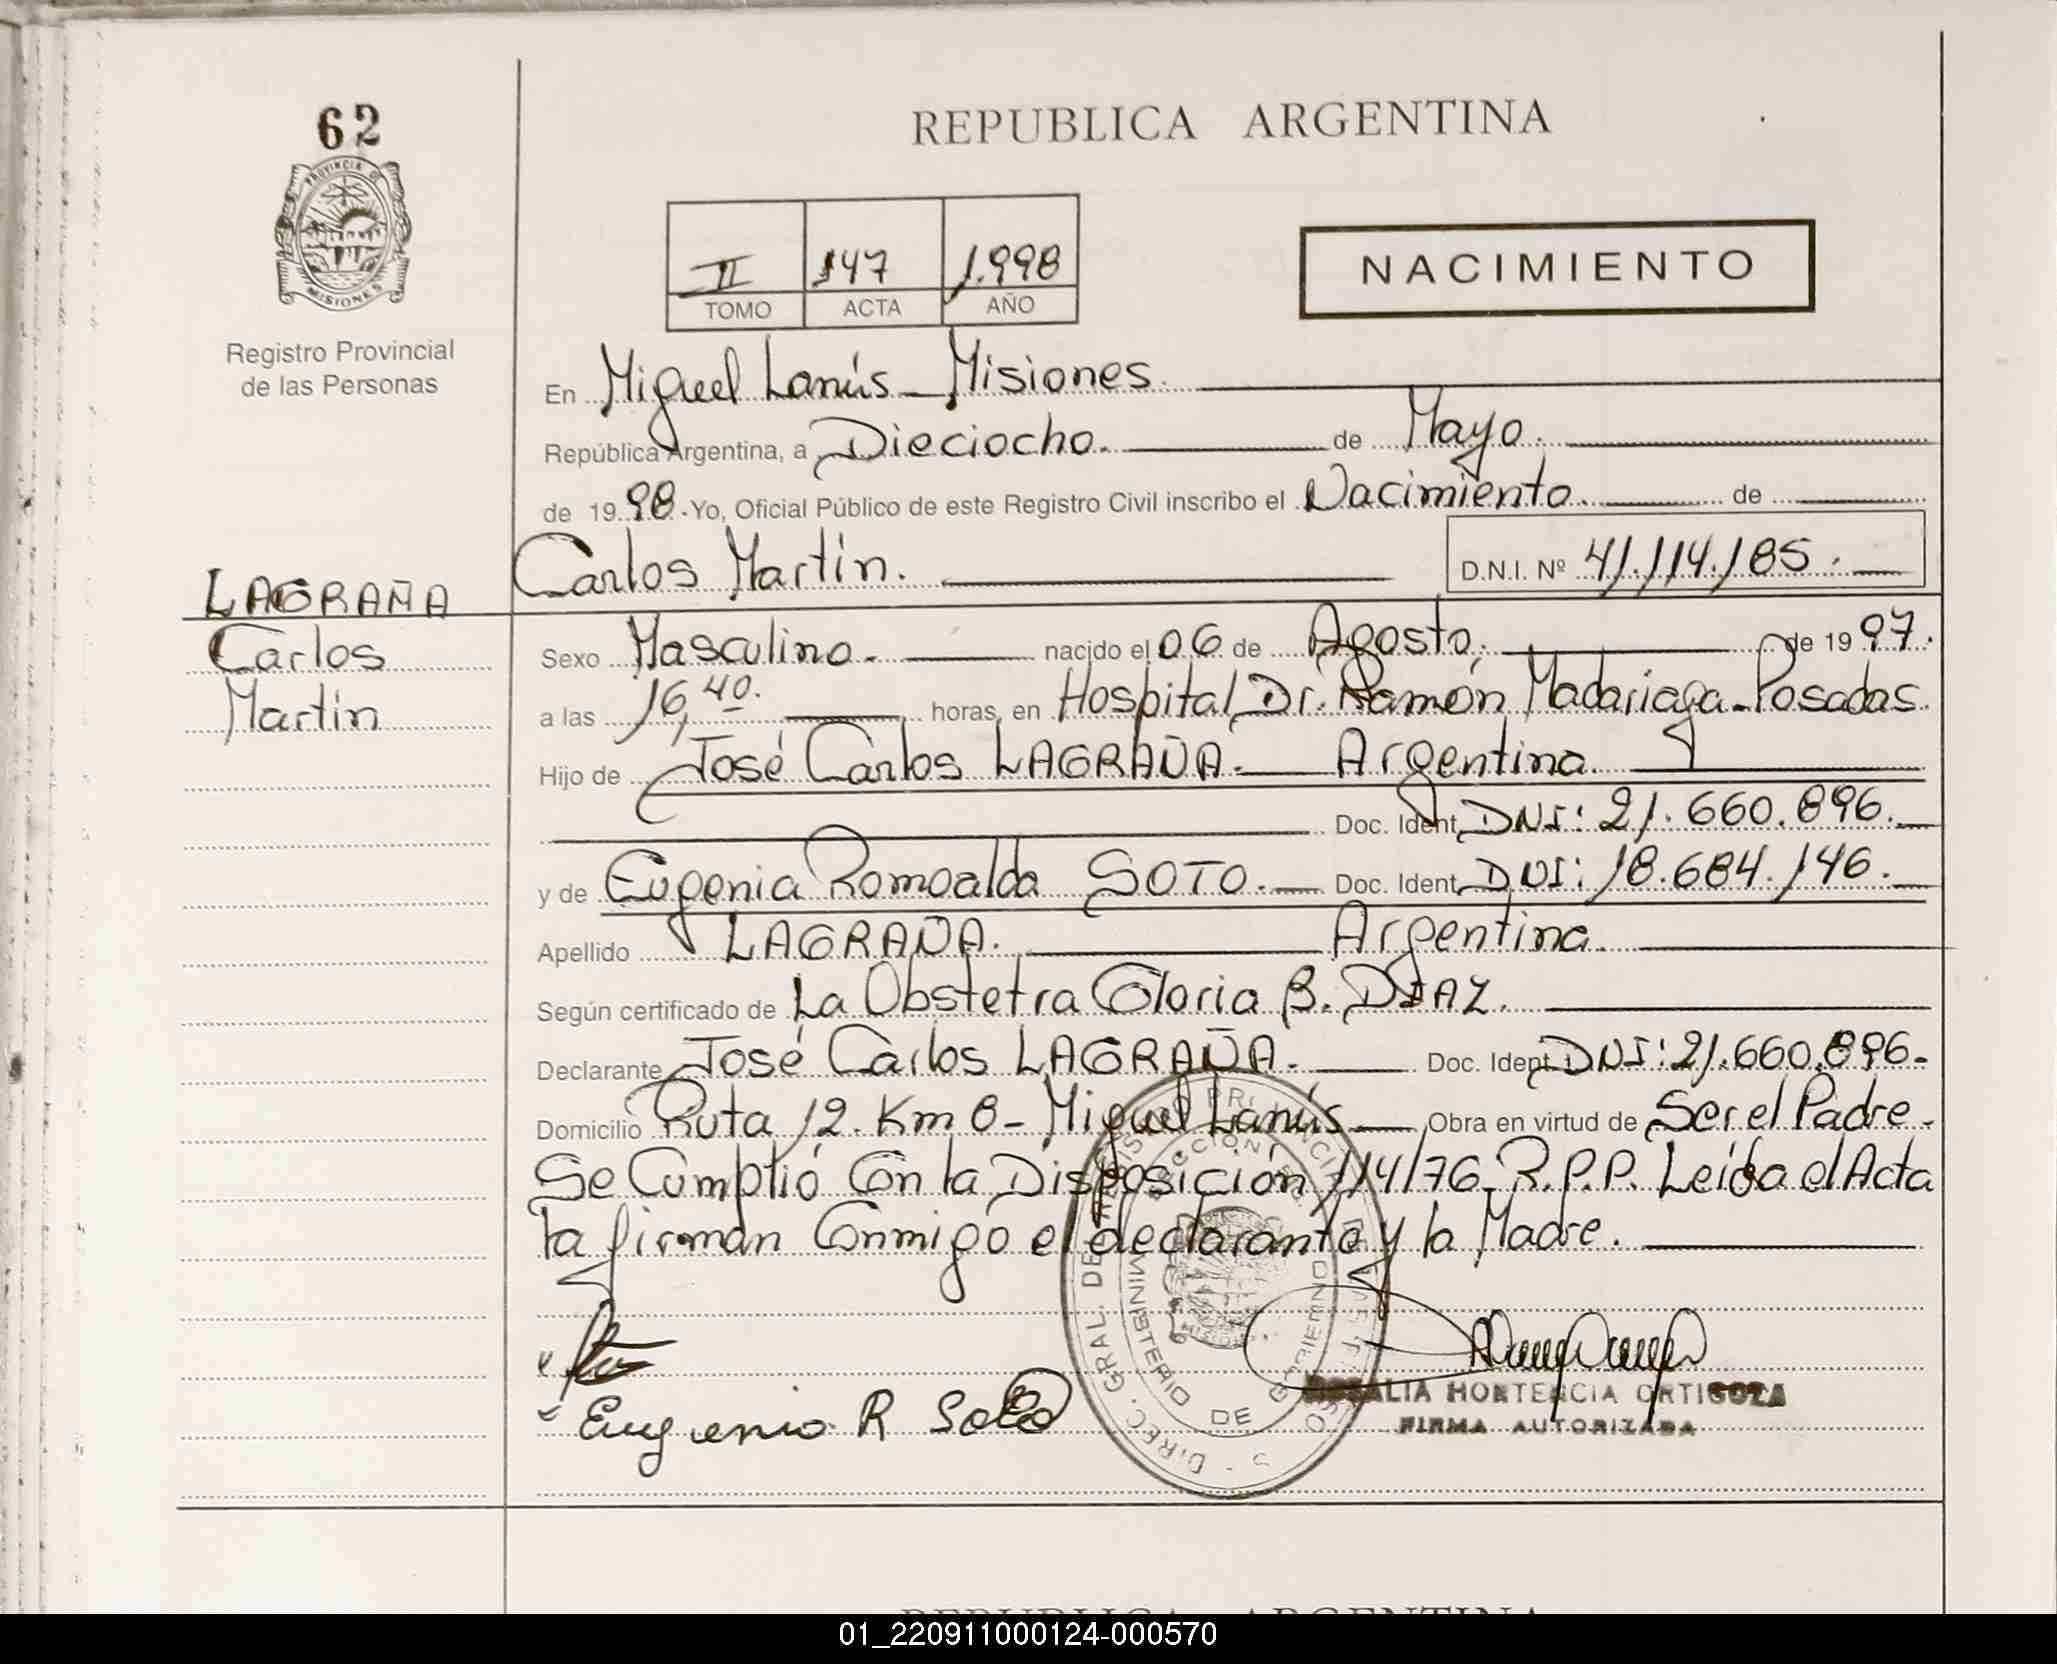 62
PROVINCIA D
MISIONES
Registro Provincial
de las Personas
REPUBLICA ARGENTINA
II 147 1.998
TOMO ACTA AÑO
NACIMIENTO
En Miguel Lanús - Misiones.
República Argentina, a Dieciocho. de Mayo.
de 19 98. Yo, Oficial Público de este Registro Civil inscribo el Nacimiento. de
Carlos Martin. D.N.I. Nº 41.114.185.
LAGRAÑA
Carlos
Martin
Sexo Masculino. nacido el 06 de Agosto. de 19 97.
a las 16,40. horas, en Hospital Dr. Ramón Madariaga - Posadas.
Hijo de José Carlos LAGRAÑA. Argentina.
Doc. Ident. DNI: 21.660.896.
y de Eugenia Romoalda SOTO. Doc. Ident. DNI: 18.684.146.
Apellido LAGRAÑA. Argentina.
Según certificado de La Obstetra Gloria B. DIAZ.
Declarante José Carlos LAGRAÑA. Doc. Ident. DNI: 21.660.896.
Domicilio Ruta 12. Km 8 - Miguel Lanús Obra en virtud de Ser el Padre.
Se Cumplió Con la Disposición 114/76 R.P.P. Leída el Acta
la firman Conmigo el declarante y la Madre.
Eugenia R Soto
DIREC. GRAL. DE
MINISTERIO DE GOBIERNO
ROSALIA HORTENCIA ORTIGOZA
FIRMA AUTORIZADA
REPUBLICA ARGENTINA
01_220911000124-000570